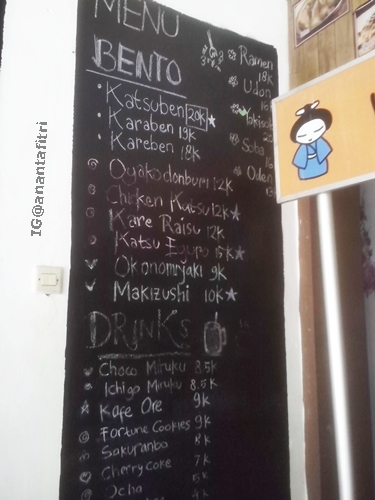 MENU
BENTO
Katsuben 20k ★
Karaben 19k
Kareben 18k
Oyakodonburi 12k
Chicken Katsu 12k ★
Kare Raisu 12k
Katsu 15k ★
Okonomiyaki 9k
Makizushi 10k ★
Ramen
18k
Udon
Yakisoba
Soba
Oden
DRINKS
Choco Miruku 8.5k
Ichigo Miruku 8.5k
Kafe Ore 9k
Fortune Cookies 9k
Sakuranbo 8k
Cherry coke 7k
Ocha
IG@anantafitri